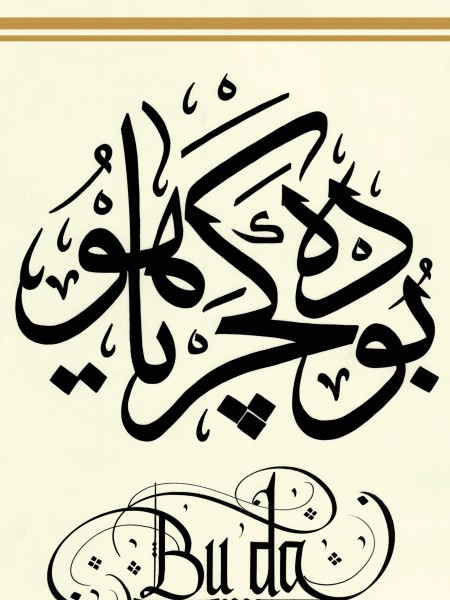 بو ده كچر يا هو
Bu da